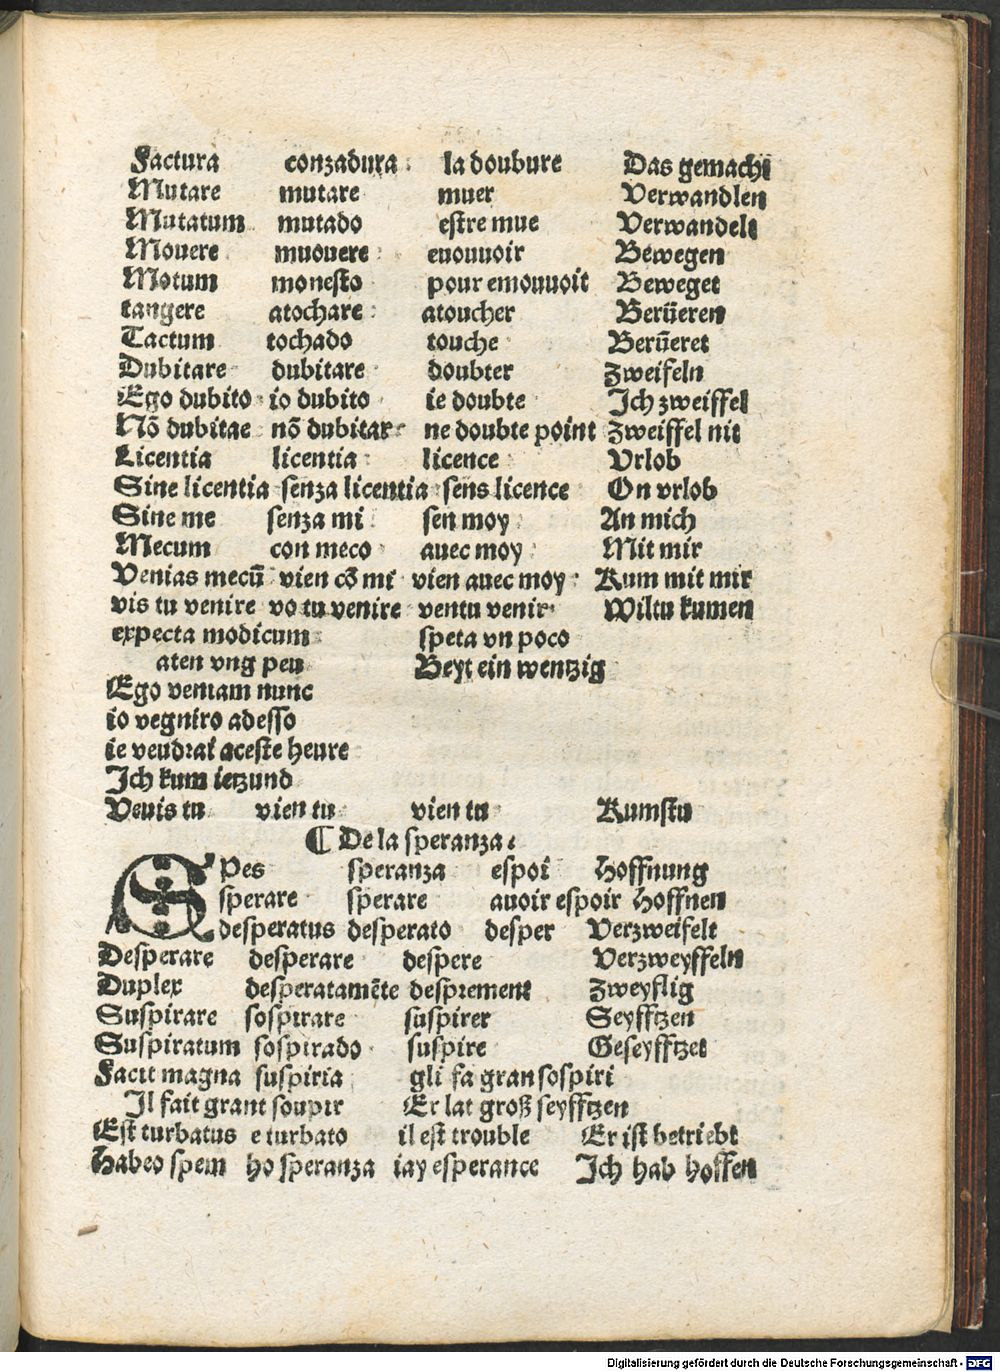 Factura conzadura la doubure Das gemacht
Mutare mutare muer Verwandlen
Mutatum mutado estre mue Verwandelt
Mouere muouere euouuoir Bewegen
Motum monesto pour emouuoit Beweget
tangere atochare atoucher Berüeren
Tactum tochado touche Berüeret
Dubitare dubitare doubter Zweifeln
Ego dubito io dubito ie doubte Ich zweiffel
Nō dubitae nō dubitar ne doubte point Zweiffel nit
Licentia licentia licence Vrlob
Sine licentia senza licentia sens licence On vrlob
Sine me senza mi sen moy An mich
Mecum con meco auec moy Mit mir
Venias mecū vien cō mi vien auec moy Kum mit mir
vis tu venire vo tu venire ventu venir Wiltu kumen
expecta modicum speta vn poco
aten vng peu Beyt ein wentzig
Ego veniam nunc
io vegniro adesso
ie veudrai aceste heure
Ich kum ietzund
Venis tu vien tu vien tu Kumstu
¶ De la speranza
SPes speranza espoi Hoffnung
sperare sperare auoir espoir Hoffnen
desperatus desperato desper Verzweifelt
Desperare desperare despere Verzweyffeln
Duplex desperatamēte desprement Zweyflig
Suspirare sospirare suspirer Seyfftzen
Suspiratum sospirado suspire Geseyfftzet
Facit magna suspiria gli fa gran sospiri
Il fait grant soupir Er lat groß seyfftzen
Est turbatus e turbato il est trouble Er ist betriebt
Habeo spem ho speranza iay esperance Ich hab hoffen
Digitalisierung gefördert durch die Deutsche Forschungsgemeinschaft - DFG